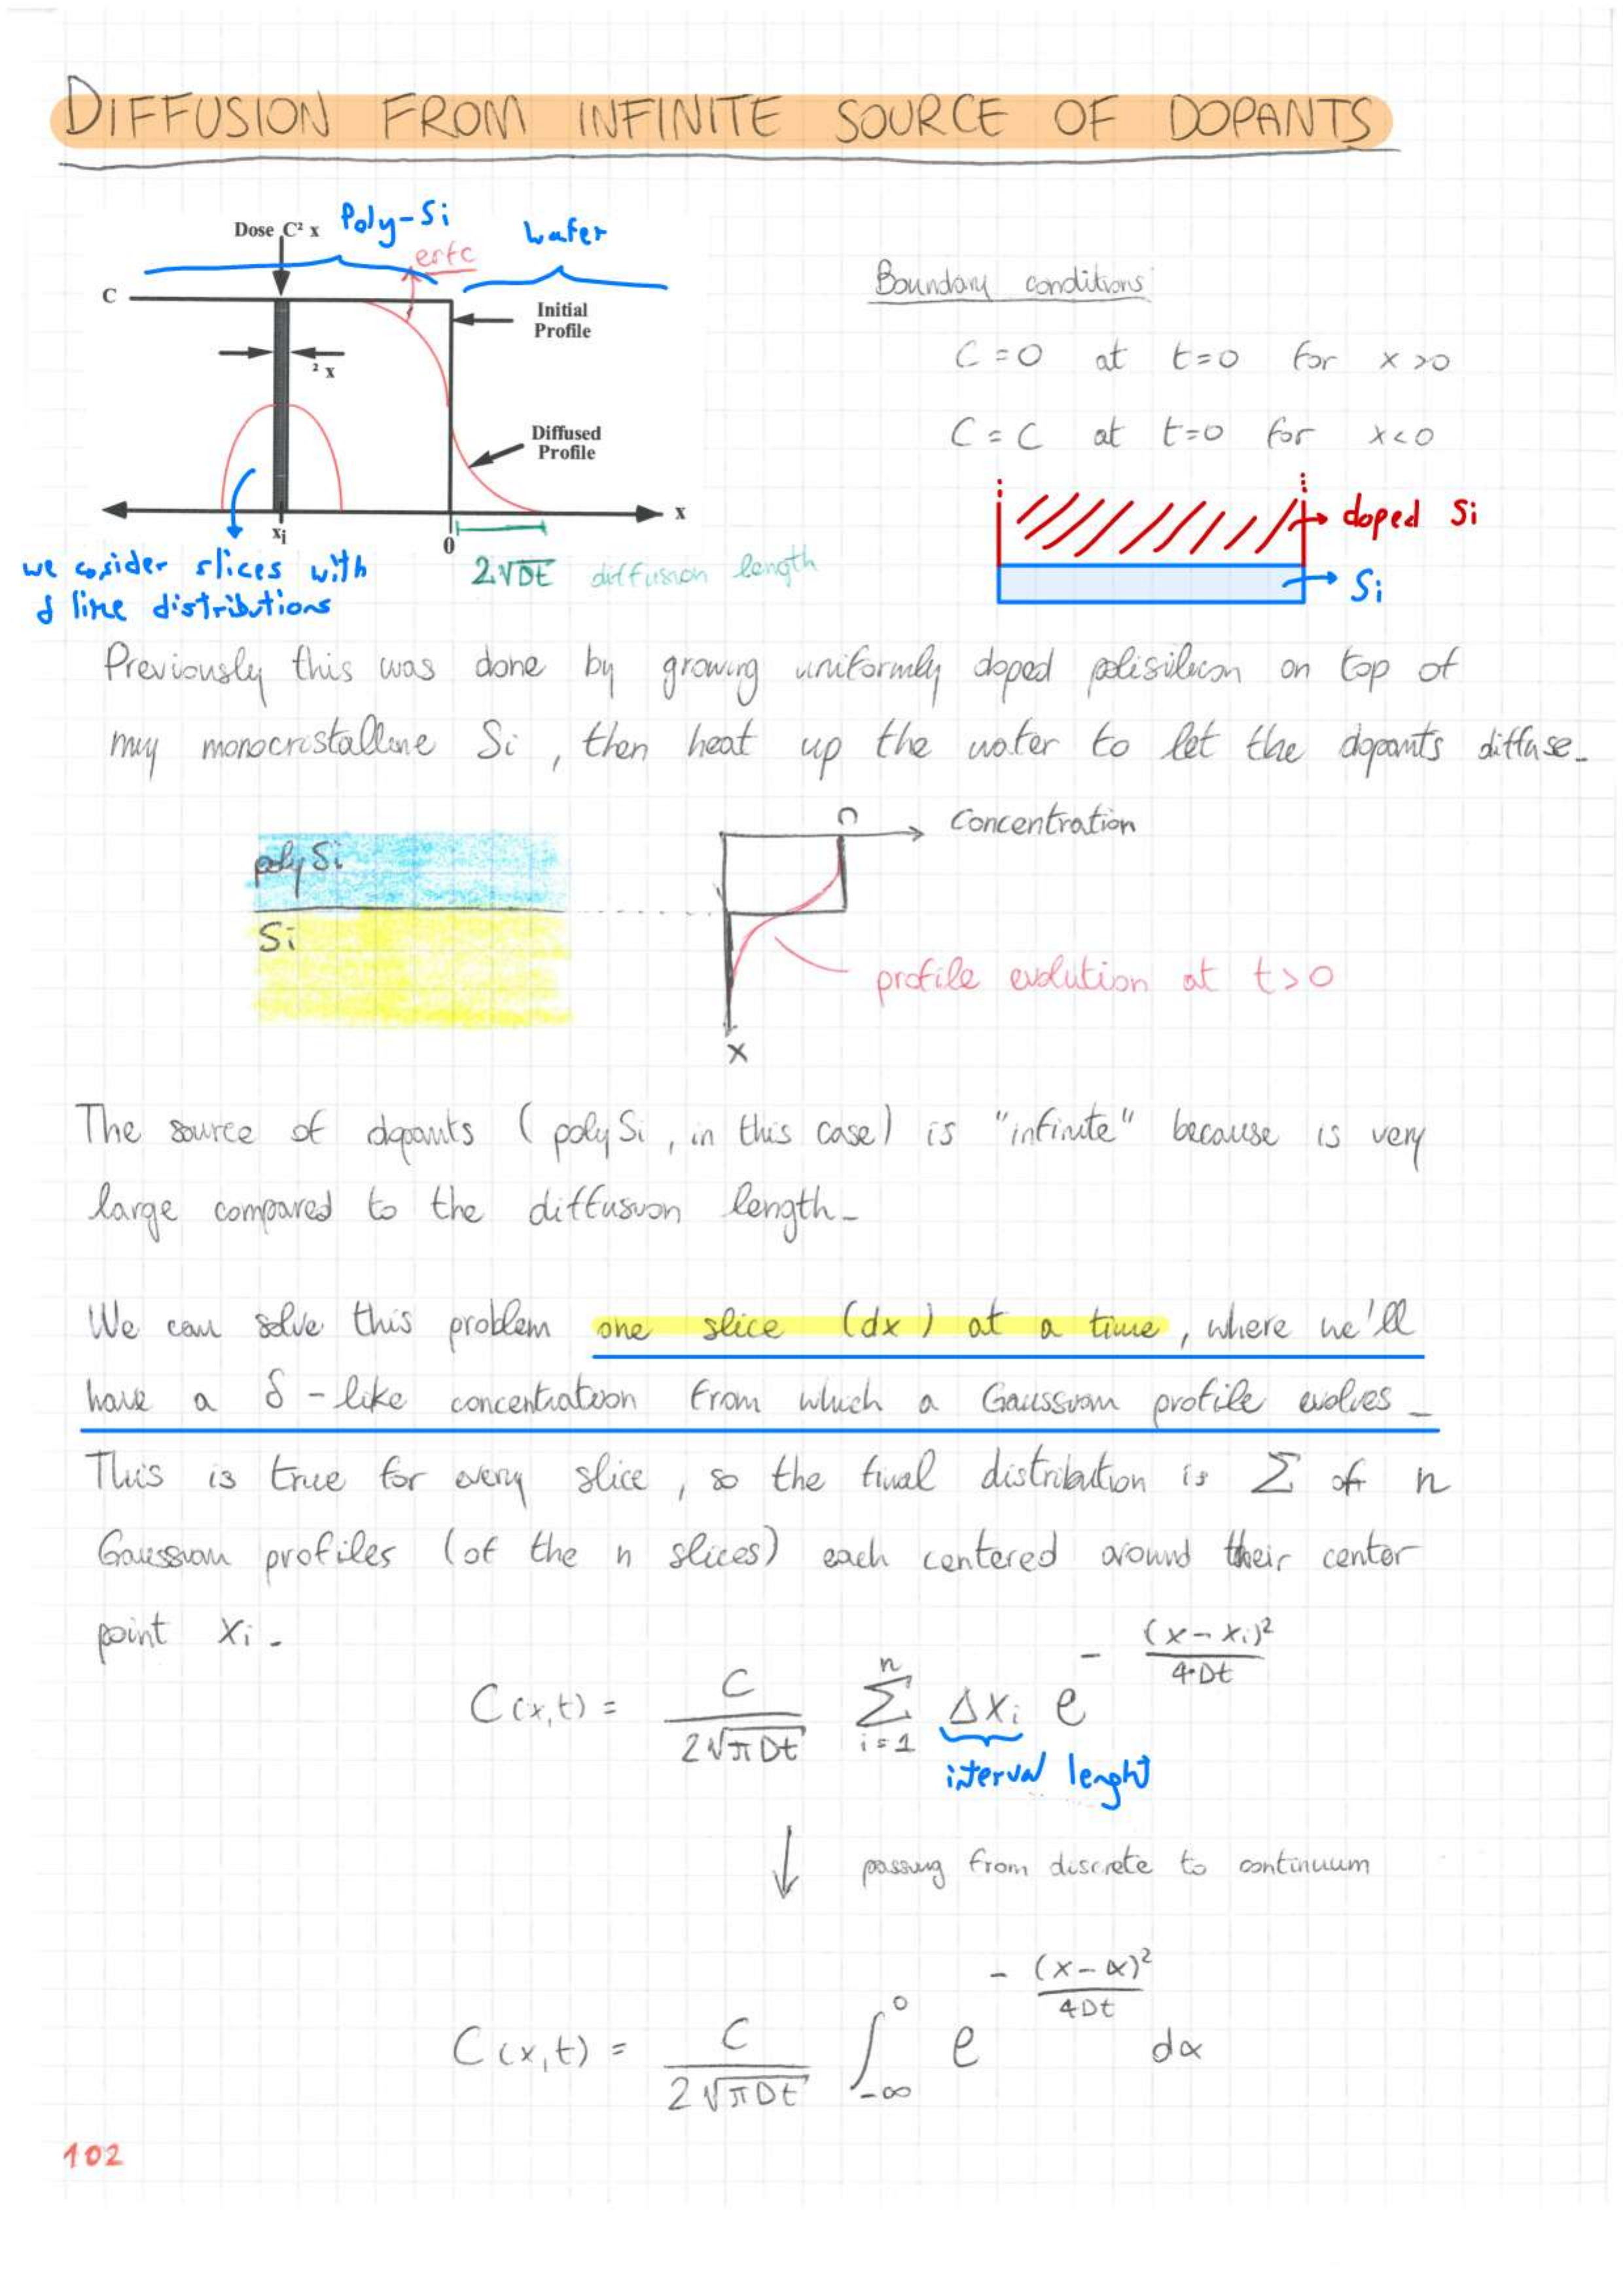 DIFFUSION FROM INFINITE SOURCE OF DOPANTS
Dose C² x
Poly-Si
wafer
erfc
C
Initial
Profile
² x
Diffused
Profile
x
xi
0
we cosider slices with
δ like distributions
2√Dt diffusion length
Boundary conditions
C = 0 at t=0 for x >0
C = C at t=0 for x<0
doped Si
Si
Previously this was done by growing uniformly doped polisilicon on top of
my monocristalline Si, then heat up the water to let the dopants diffuse_
poly Si
Si
C
Concentration
profile evolution at t>0
x
The source of dopants (poly Si, in this case) is "infinite" because is very
large compared to the diffusion length_
We can solve this problem one slice (dx) at a time, where we'll
have a δ-like concentration from which a Gaussian profile evolves_
This is true for every slice, so the final distribution is Σ of n
Gaussian profiles (of the n slices) each centered around their center
point xi_
C(x,t) = C / 2√πDt Σ i=1 n Δxi e^-(x-xi)²/4Dt
interval lenght
↓ passing from discrete to continuum
C(x,t) = C / 2√πDt ∫ -∞ 0 e^-(x-α)²/4Dt dα
102